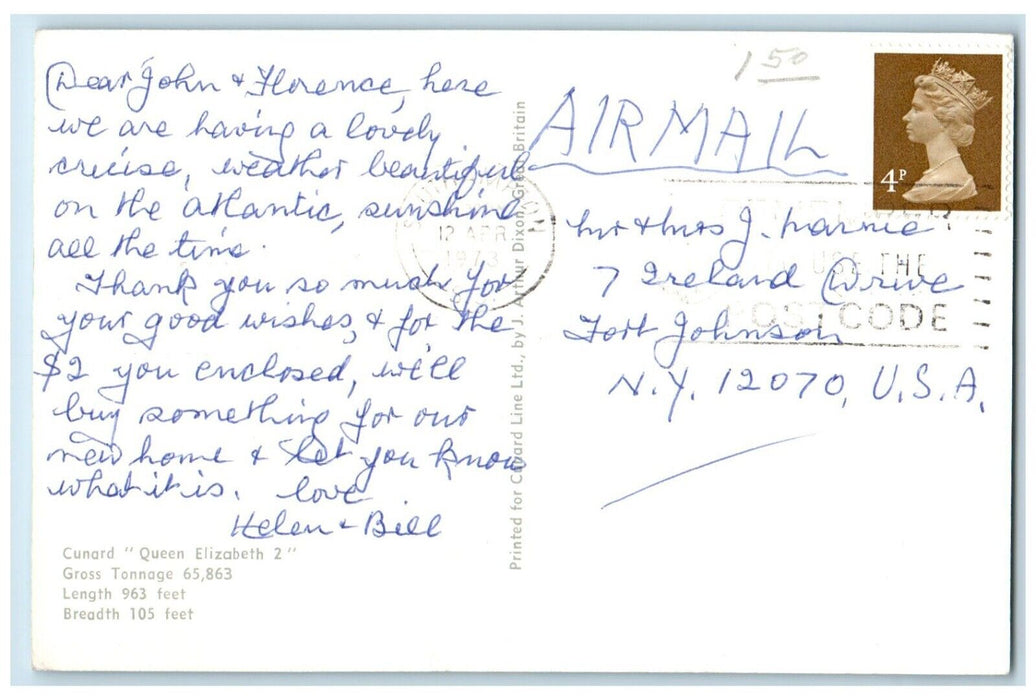 Dear John & Florence, here
we are having a lovely
cruise, weather beautiful
on the atlantic, sunshine
all the time.
Thank you so much for
your good wishes, & for the
$2 you enclosed, we'll
buy something for our
new home & let you know
what it is. love
Helen & Bill
Cunard "Queen Elizabeth 2"
Gross Tonnage 65,863
Length 963 feet
Breadth 105 feet
Printed for Cunard Line Ltd., by J. Arthur Dixon, Great Britain
150
AIRMAIL
4P
12 APR
1973
USE THE
POSTCODE
Mr & Mrs J.
7 Ireland Drive
Fort Johnson
N.Y. 12070, U.S.A.